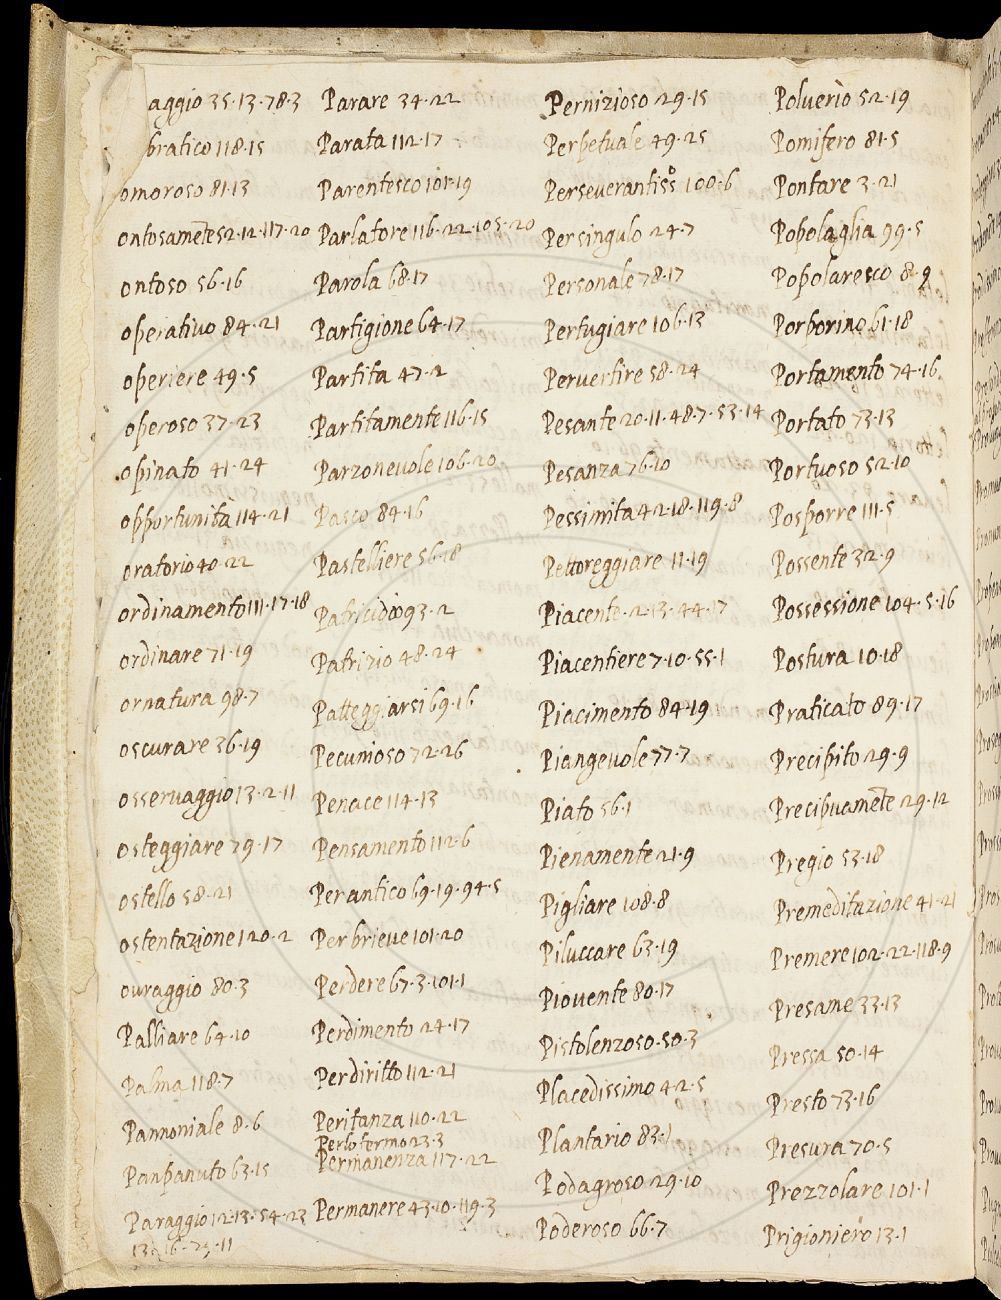 aggio 35·13·78·3
bratico 118·15
omoroso 81·13
ontosamēte 52·12·117·20
ontoso 56·16
operativo 84·21
operiere 49·5
operoso 37·23
opinato 41·24
opportunità 114·21
oratorio 40·22
ordinamento 111·17·18
ordinare 71·19
ornatura 98·7
oscurare 36·19
osservaggio 13·2·11
osteggiare 79·17
ostello 58·21
ostentazione 120·2
ouraggio 80·3
Palliare 64·10
Palma 118·7
Pannoniale 8·6
Panpanuto 63·15
Paraggio 12·13·54·23
Parare 34·22
Parata 112·17
Parentesco 101·19
Parlatore 116·22·105·20
Parola 68·17
Partigione 64·17
Partita 47·2
Partitamente 116·15
Parzonevole 106·20
Pasco 84·16
Pastelliere 56·18
93·2
Patrizio 48·24
Patteggiarsi 69·16
Pecunioso 72·26
Penace 114·13
Pensamento 112·6
Per antico 69·19·94·5
Per brieve 101·20
Perdere 67·3·101·1
Perdimento 24·17
Perdiritto 112·21
Peritanza 110·22
Perlo fermo 23·3
Permanenza 117·22
Permanere 43·10·119·3
Pernizioso 29·15
Perpetuale 49·25
Perseverantissº 100·6
Persingulo 24·7
Personale 78·17
Pertugiare 106·13
Pervertire 58·24
Pesante 20·11·48·7·53·14
Pesanza 76·10
Pessimità 42·18·119·8
Pettoreggiare 11·19
Piacente 2·13·44·17
Piacentiere 7·10·55·1
Piacimento 84·19
Piangevole 77·7
Piato 56·1
Pienamente 21·9
Pigliare 108·8
Piluccare 63·19
Piovente 80·17
Pistolenzoso 50·3
Placedissimo 42·5
Plantario 83·1
Podagroso 29·10
Poderoso 66·7
Polverio 52·19
Pomifero 81·5
Pontare 3·21
Popolaglia 99·5
Popolaresco 8·9
Porporino 61·18
Portamento 74·16
Portato 73·13
Portuoso 52·10
Posporre 111·5
Possente 32·9
Possessione 104·5·16
Postura 10·18
Praticato 89·17
Precipito 29·9
Precipuamēte 29·12
Pregio 53·18
Premeditazione 41·21
Premere 102·22·118·9
Presame 33·13
Pressa 50·14
Presto 73·16
Presura 70·5
Prezzolare 101·1
Prigioniero 13·1